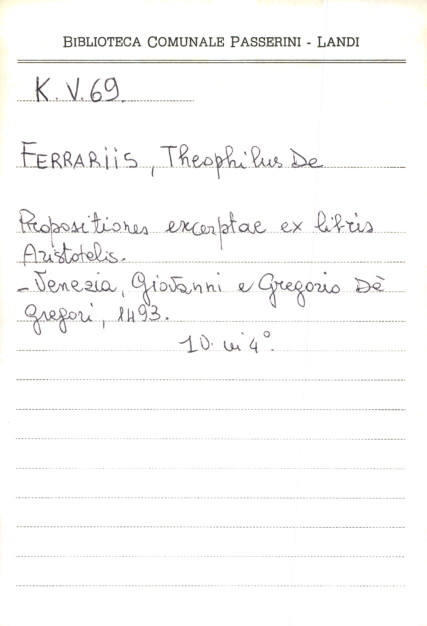 BIBLIOTECA COMUNALE PASSERINI - LANDI
K. V. 69.
FERRARIIS, Theophilus De
Propositiones excerptae ex libris
Aristotelis.
- Venezia, Giovanni e Gregorio Dè
Gregori, 1493.
10. in 4°.